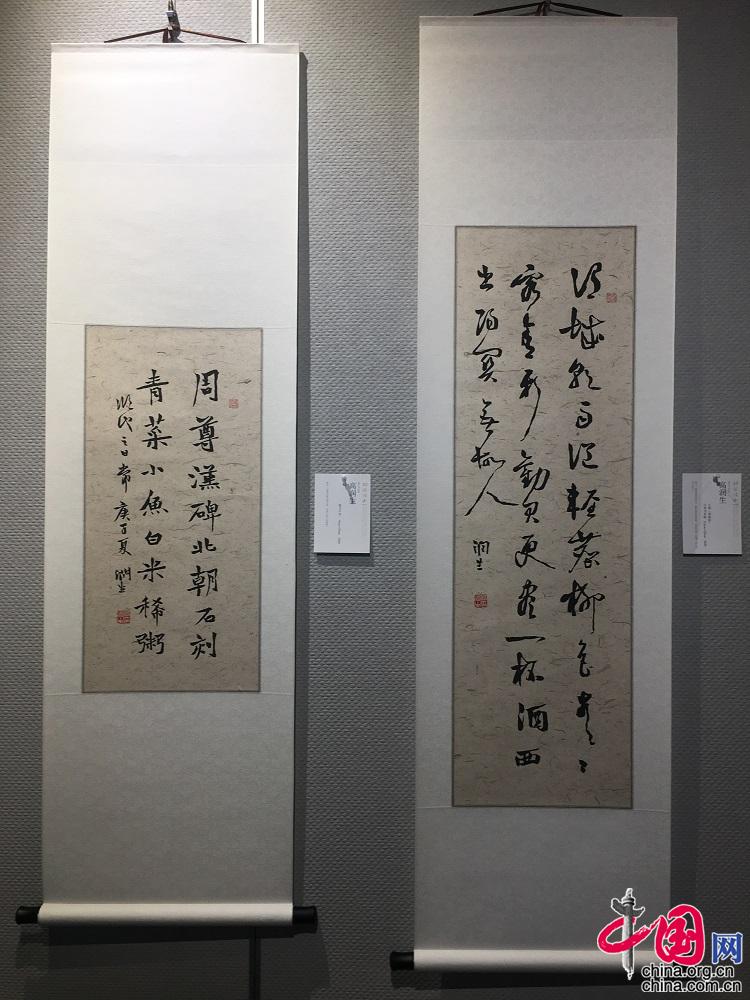 周尊漢碑北朝石刻
青菜小魚白米稀粥
日常 庚子夏 潤生
高润生
渭城朝雨浥輕塵柳色青〻
客舍新勸君更盡一杯酒西
出陽關無故人
潤生
高润生
中国网
china.org.cn
china.com.cn